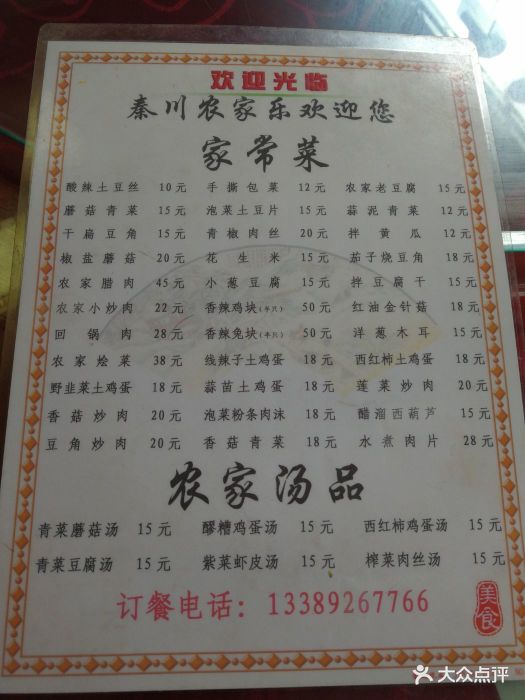 欢迎光临
秦川农家乐欢迎您
家常菜
酸辣土豆丝 10元 手撕包菜 12元 农家老豆腐 15元
蘑菇青菜 15元 泡菜土豆片 15元 蒜泥青菜 12元
干扁豆角 15元 青椒肉丝 20元 拌黄瓜 12元
椒盐蘑菇 20元 花生米 15元 茄子烧豆角 18元
农家腊肉 45元 小葱豆腐 15元 拌豆腐干 15元
农家小炒肉 22元 香辣鸡块(半只) 50元 红油金针菇 18元
回锅肉 28元 香辣兔块(半只) 50元 洋葱木耳 15元
农家烩菜 38元 线辣子土鸡蛋 18元 西红柿土鸡蛋 18元
野韭菜土鸡蛋 18元 蒜苗土鸡蛋 18元 莲菜炒肉 20元
香菇炒肉 20元 泡菜粉条肉沫 18元 醋溜西葫芦 15元
豆角炒肉 20元 香菇青菜 18元 水煮肉片 28元
农家汤品
青菜蘑菇汤 15元 醪糟鸡蛋汤 15元 西红柿鸡蛋汤 15元
青菜豆腐汤 15元 紫菜虾皮汤 15元 榨菜肉丝汤 15元
订餐电话: 13389267766
美食
大众点评